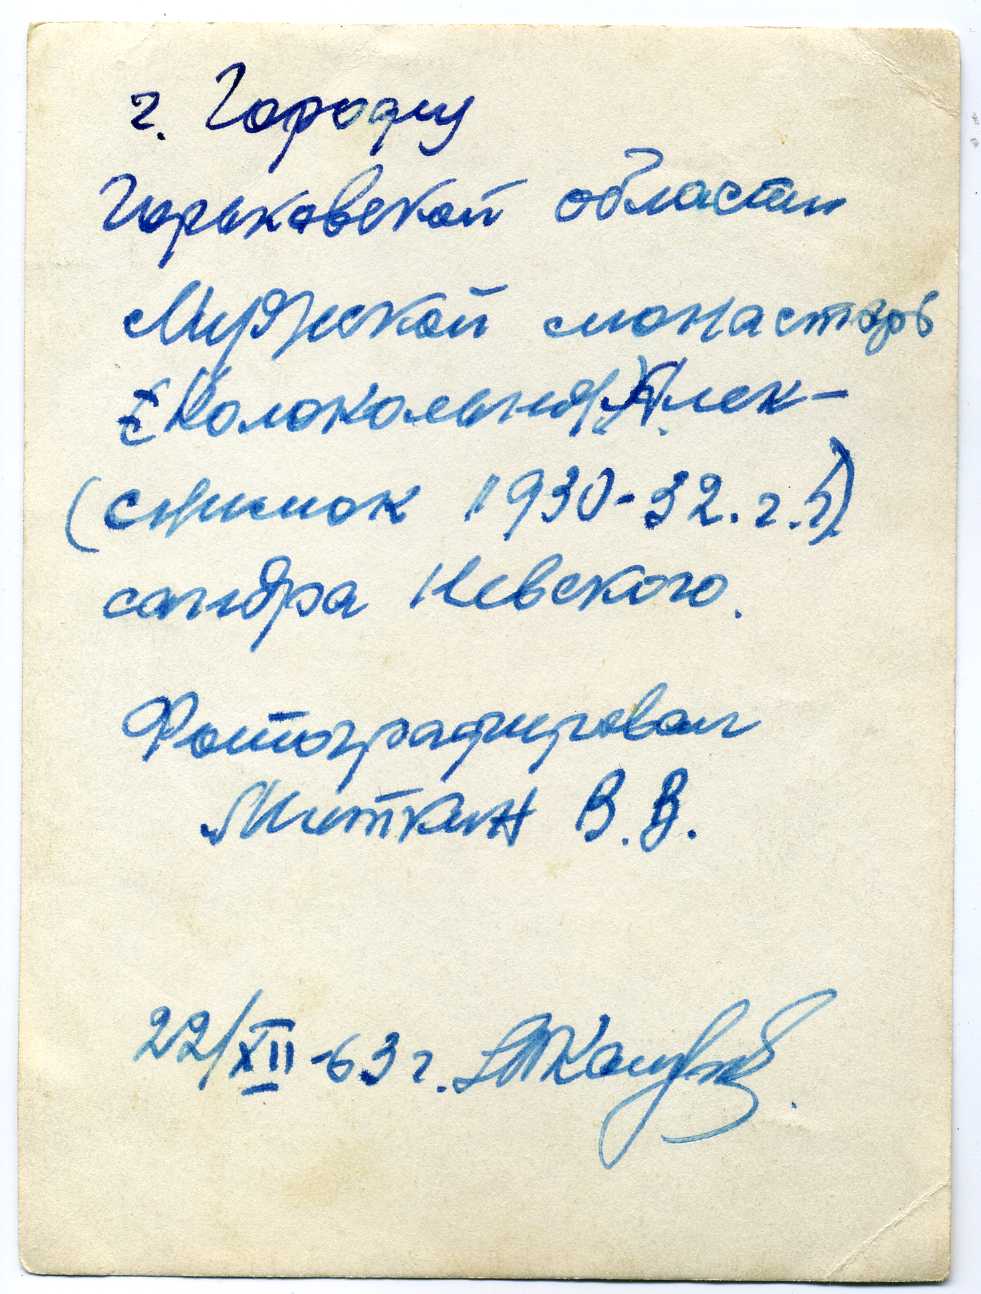 г. Городец
Горьковской области
Мужской монастырь
(Колокольня) Алек-
(снимок 1930-32.г.г.)
сандра Невского.
Фотографировал
Миткин В. В.
22/XII-63 г.